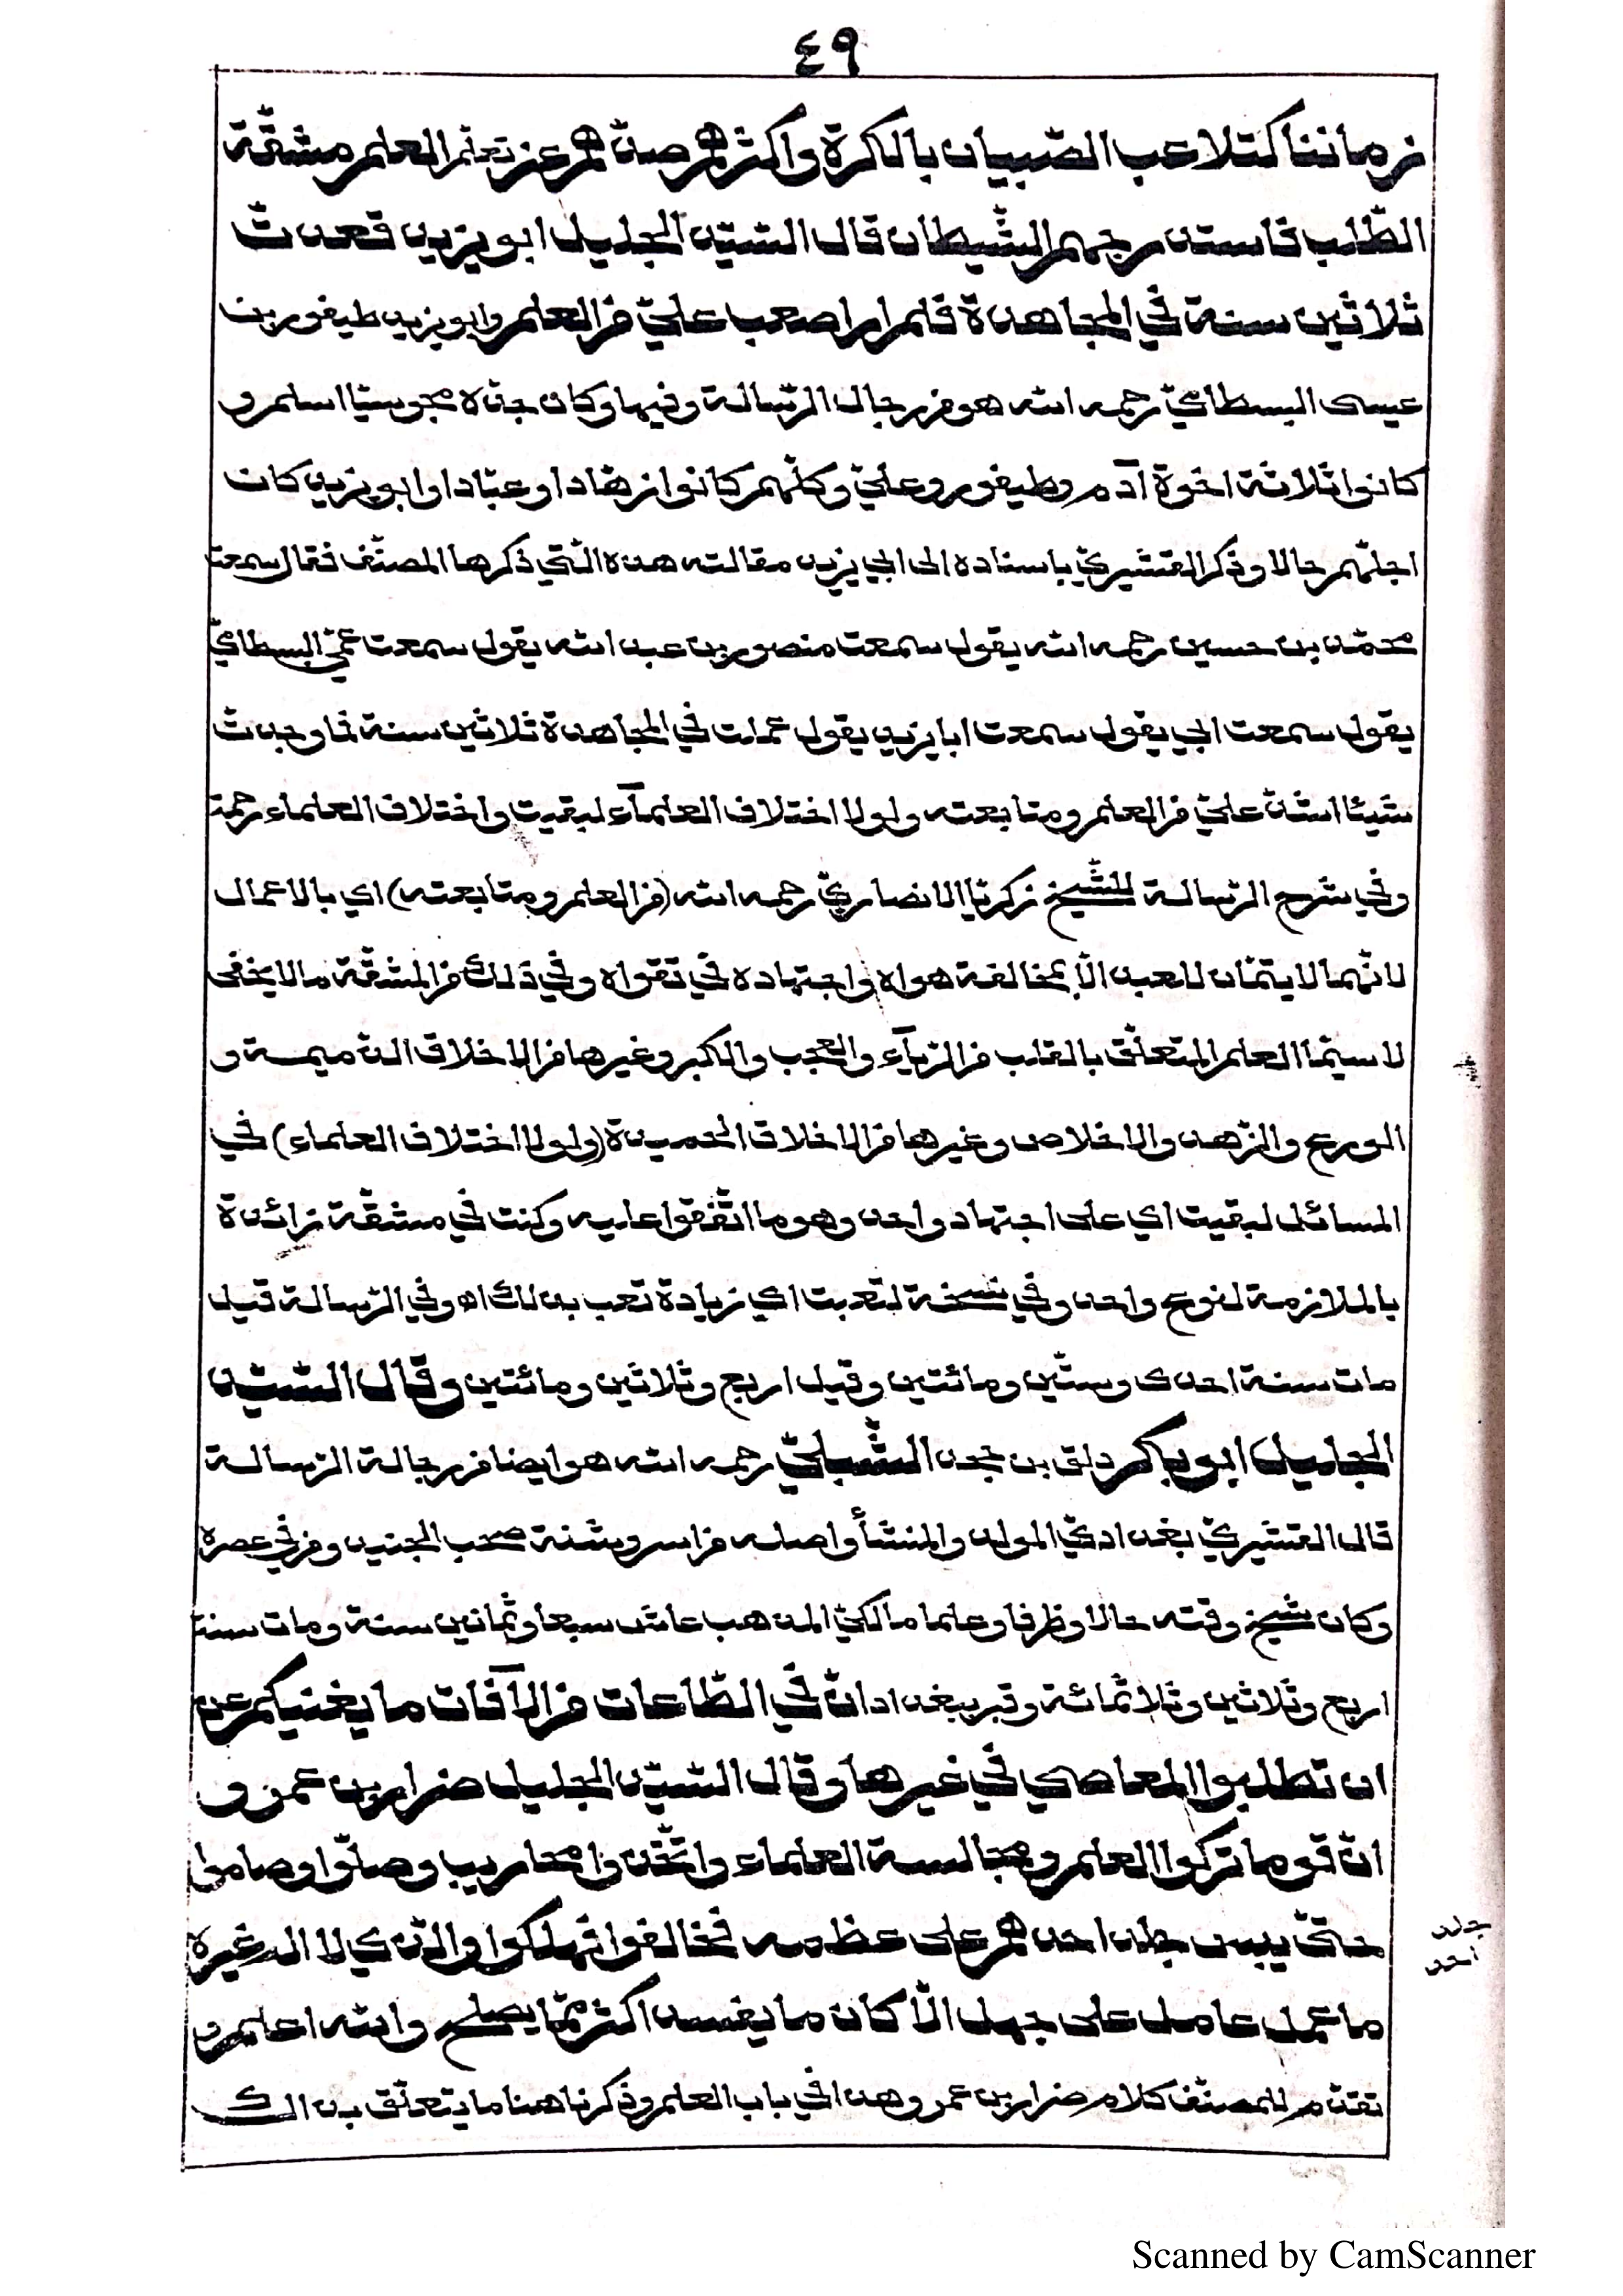 ٤٩
زماننا كتلاعب الصّبيان بالكرة واكثرهم صدّهم عن تعلّم العلم مشقّة
الطّلب فاستدرجهم الشّيطان قال السّيّد الجليل ابو يزيد قعدتّ
ثلاثين سنة في المجاهدة فلم ار اصعب عليّ من العلم وابو يزيد طيفور بن
عيسى البسطاميّ رحمه الله هو من رجال الرّسالة وفيها وكان جدّه مجوسيّا اسلم و
كانوا ثلاثة اخوة آدم وطيفور وعليّ وكلّهم كانوا زهّادا وعبّادا وابو يزيد كان
اجلّهم حالا وذكر القشيريّ باسناده الى ابي يزيد مقالته هذه الّتي ذكرها المصنّف فقال سمعت
محمّد بن حسين رحمه الله يقول سمعت منصور بن عبد الله يقول سمعت عمّي البسطاميّ
يقول سمعت ابي يقول سمعت ابا يزيد يقول عملت في المجاهدة ثلاثين سنة فما وجدتّ
شيئا اشدّ عليّ من العلم ومتابعته ولولا اختلاف العلمآء لبقيت واختلاف العلماء رحمة
وفي شرح الرّسالة للشّيخ زكريّا الانصاريّ رحمه الله (من العلم ومتابعته) اي بالاعمال
لانّهما لا يتمّان للعبد الّا بمخالفة هواه واجتهاده في تقواه وفي ذلك من المشقّة ما لا يخفى
لا سيّما العلم المتعلّق بالقلب من الرّيآء والعجب والكبر وغيرها من الاخلاق الذّميمة و
الورع والزّهد والاخلاص وغيرها من الاخلاق الحميدة (ولولا اختلاف العلماء) في
المسائل لبقيت اي على اجتهاد واحد وهو ما اتّفقوا عليه وكنت في مشقّة زائدة
بالملازمة لنوع واحد وفي نسخة لتعبت اي زيادة تعب بذلك اه وفي الرّسالة قيل
مات سنة احدى وستّين ومائتين وقيل اربع وثلاثين ومائتين وقال السّيّد
الجليل ابو بكر دلف بن جحدر الشّبليّ رحمه الله هو ايضا من رجالة الرّسالة
قال القشيريّ بغداديّ المولد والمنشأ واصله من اسروشنة صحب الجنيد ومن في عصره
وكان شيخ وقته حالا وظرفا وعلما مالكيّ المذهب عاش سبعا وثمانين سنة ومات سنة
اربع وثلاثين وثلاثمائة وقبر ببغداد انّ في الطّاعات من الآفات ما يغنيكم عن
ان تطلبوا المعاصي في غيرها وقال السّيّد الجليل ضرار بن عمرو
انّ قوما تركوا العلم ومجالسة العلماء واتّخذوا محاريب وصلّوا وصاموا
حتّى يبس جلد احدهم على عظمه فخالفوا فهلكوا والّذي لا اله غيره
ما عمل عامل على جهل الّا كان ما يفسد اكثر ممّا يصلح والله اعلم و
تقدّم للمصنّف كلام ضرار بن عمرو هذا في باب العلم وذكرنا هنا ما يتعلّق بذلك
جلد
احد
Scanned by CamScanner